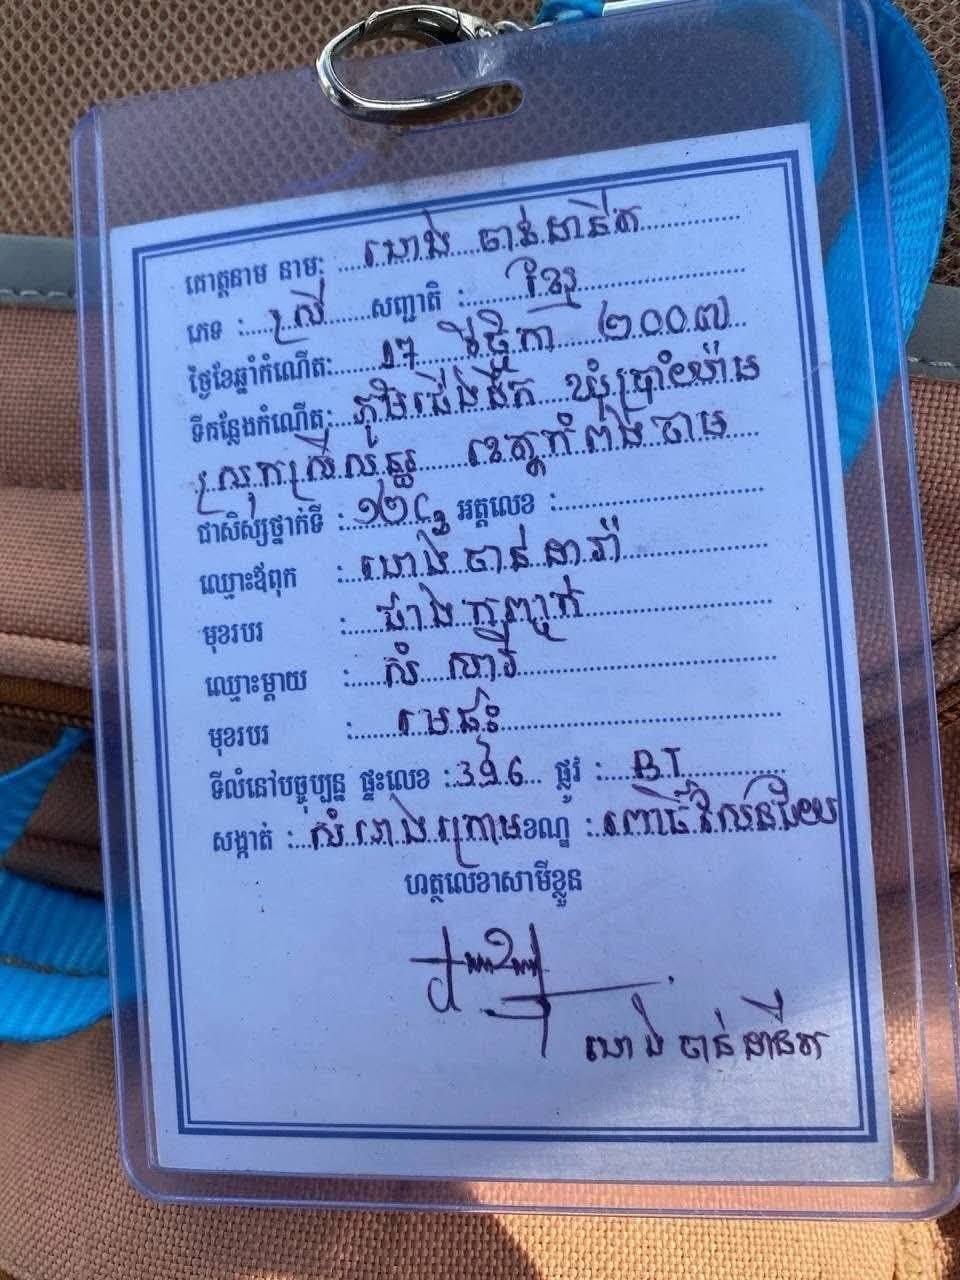 គោត្តនាម នាម: ហេង ចាន់ដានីត
ភេទ : ស្រី សញ្ជាតិ : ខ្មែរ
ថ្ងៃខែឆ្នាំកំណើត: ១៧ វិច្ឆិកា ២០០៧
ទីកន្លែងកំណើត: ភូមិជើងដឹក ឃុំប្រាំយ៉ាម
ស្រុកស្រីសន្ធរ ខេត្តកំពង់ចាម
ជាសិស្សថ្នាក់ទី : ១២ អត្តលេខ :
ឈ្មោះឪពុក : ហេង ចាន់ដារ៉ា
មុខរបរ : ជាងកញ្ចក់
ឈ្មោះម្ដាយ : សំ សារី
មុខរបរ : មេផ្ទះ
ទីលំនៅបច្ចុប្បន្ន ផ្ទះលេខ : ផ្លូវ : BT
សង្កាត់ : សំរោងក្រោម ខណ្ឌ : ពោធិ៍សែនជ័យ
ហត្ថលេខាសាមីខ្លួន
ហេង ចាន់ដានីត